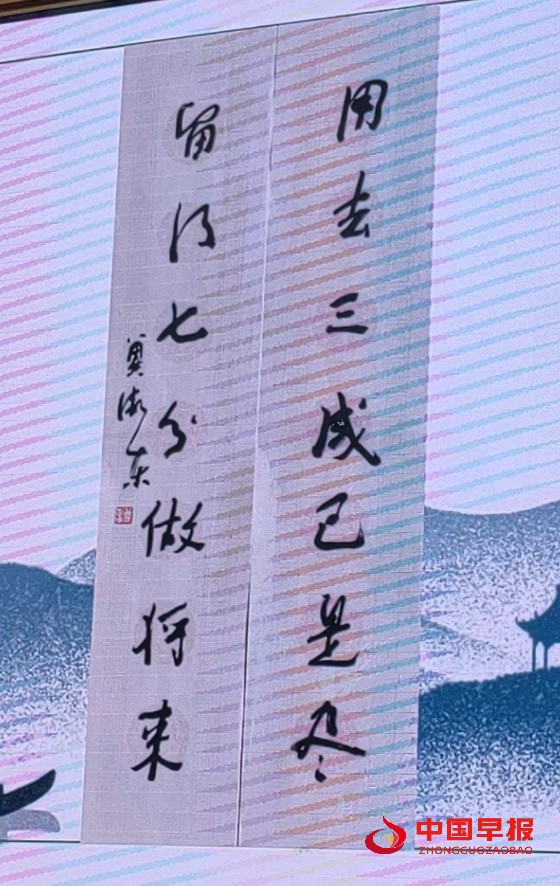 用去三成已是尽
留得七分做将来
中国早报
ZHONGGUOZAOBAO